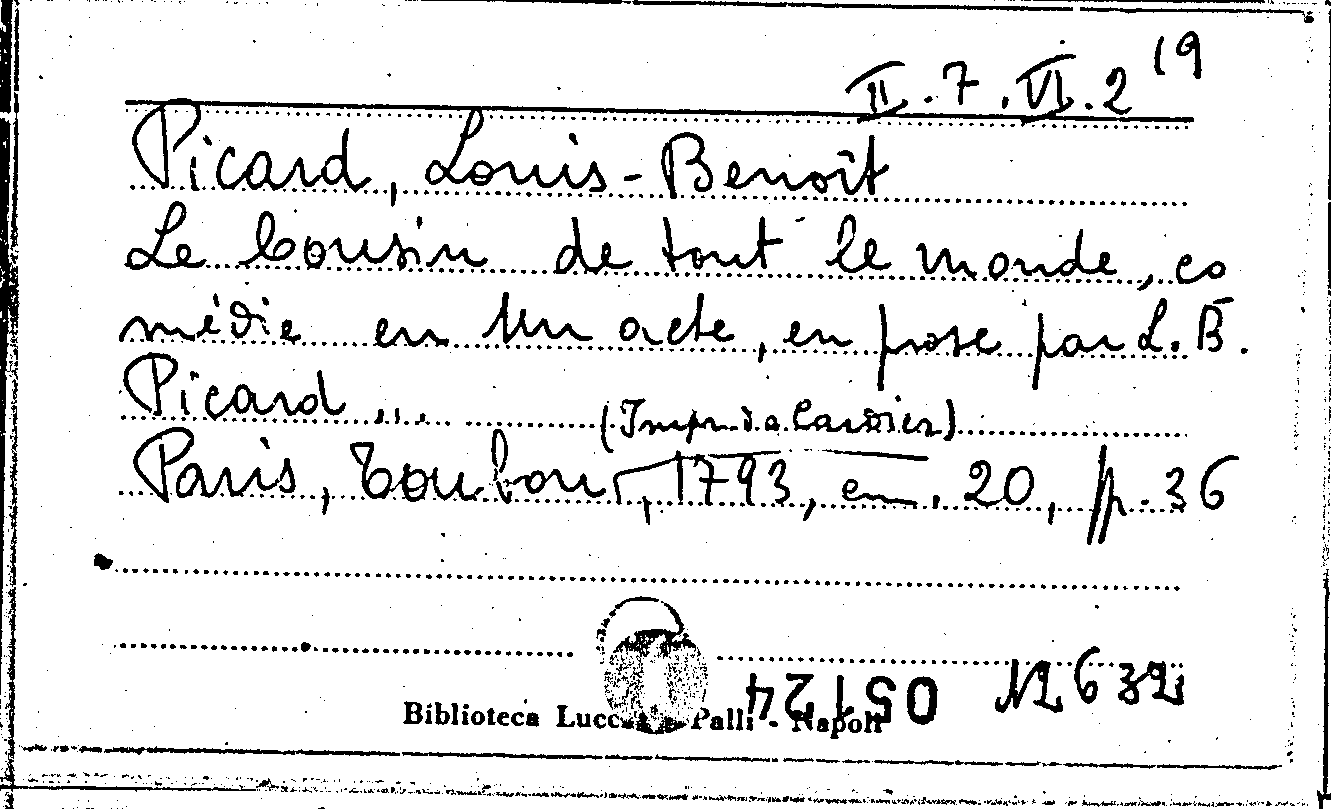 II.7.VI.2 19
Picard, Louis-Benoît
Le Cousin de tout le monde, co
médie en un acte, en prose par L.B.
Picard ...
(Impr. de Cordier)
Paris, Toubon, 1793, cm. 20, pp. 36
12632
05124
Biblioteca Lucchesi Palli - Napoli